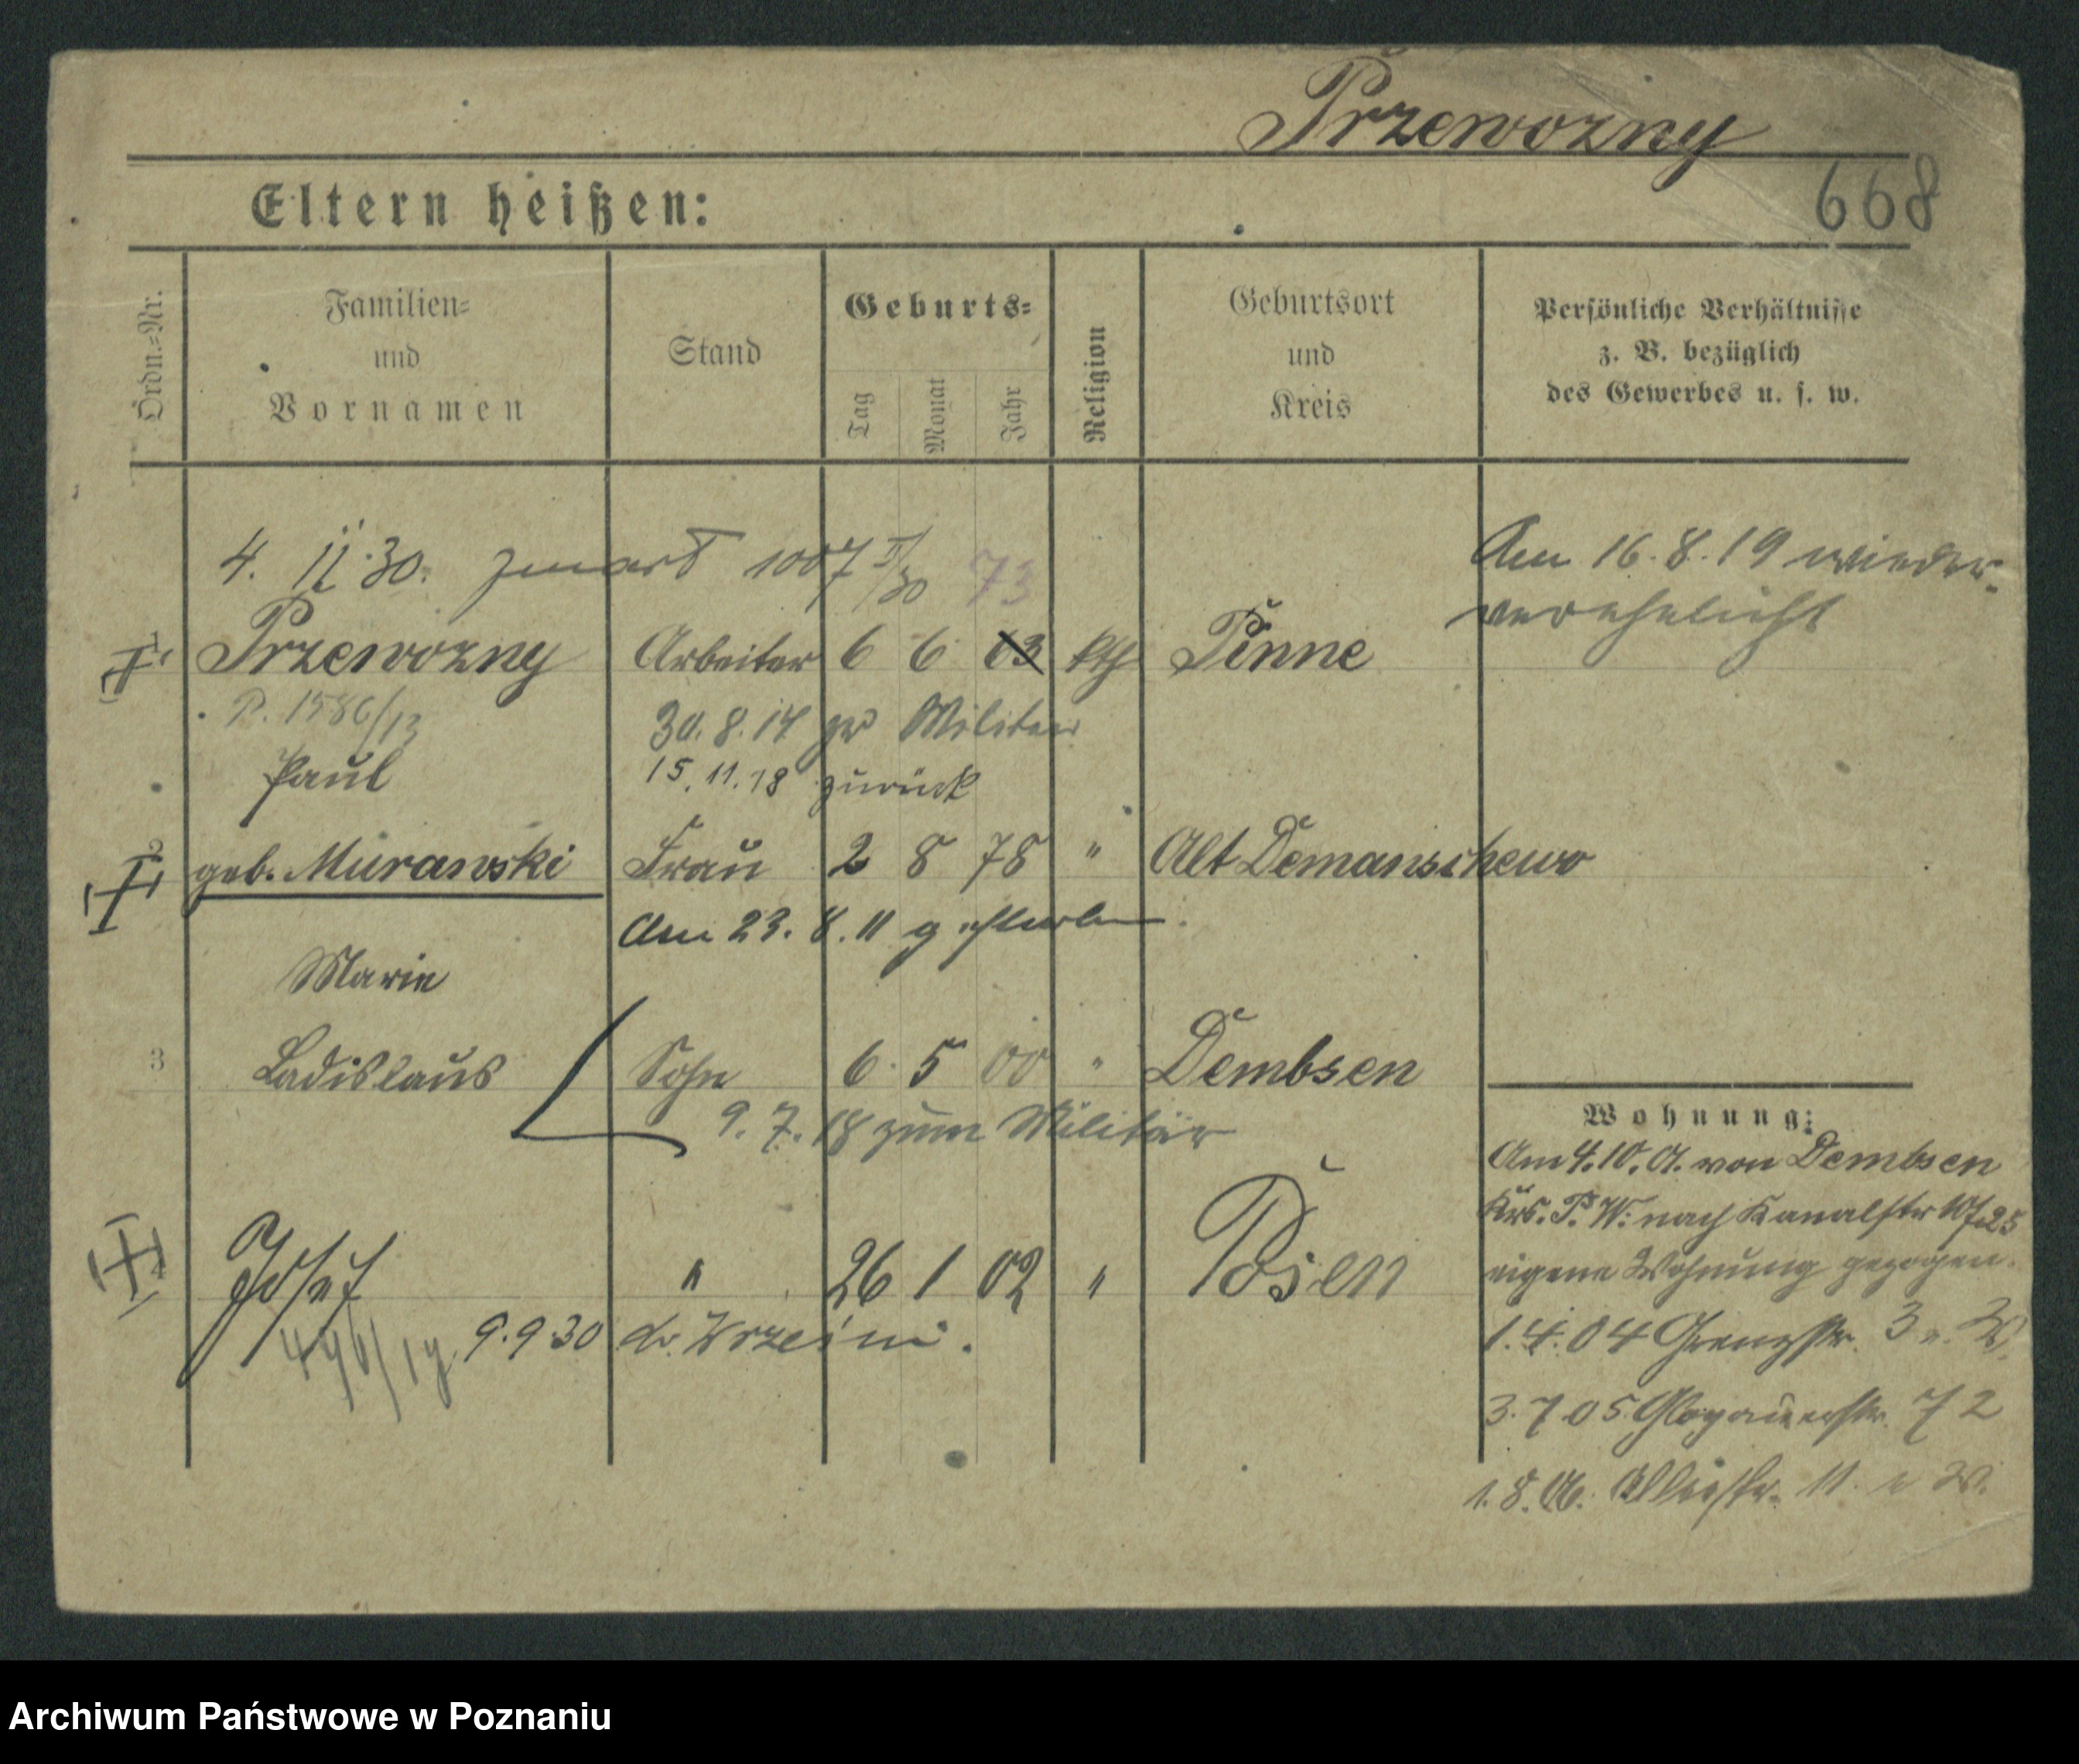 Przewozny
668
Eltern heißen:
Ordn.-Nr.
Familien-
und
Vornamen
Stand
Geburts-
Tag
Monat
Jahr
Religion
Geburtsort
und
Kreis
Persönliche Verhältnisse
z. B. bezüglich
des Gewerbes u. s. w.
4. 11. 30. zmarł 1007 II/30 73
Am 16.8.19 wieder-
verehelicht
1 Przewozny Arbeiter 6 6 63 kth Pinne
P. 1586/13
30.8.14 zu Militär
Paul
15.11.18 zurück
2 geb. Murawski Frau 2 8 78 " Alt Demanschewo
Am 23.8.11 gestorben.
Marie
3 Ladislaus Sohn 6. 5 00 " Dembsen
9.7.18 zum Militär
Wohnung:
Am 4.10.01. von Dembsen
Krs. P. W. nach Kanalstr
eigene Wohnung gezogen.
4 Josef " 26 1 02 " Posen
9.9 30 do Wrześni.
1.4.04 Grenzstr. 3
3.7.05 Glogauerstr. 72
1.8.06. 11.
Archiwum Państwowe w Poznaniu